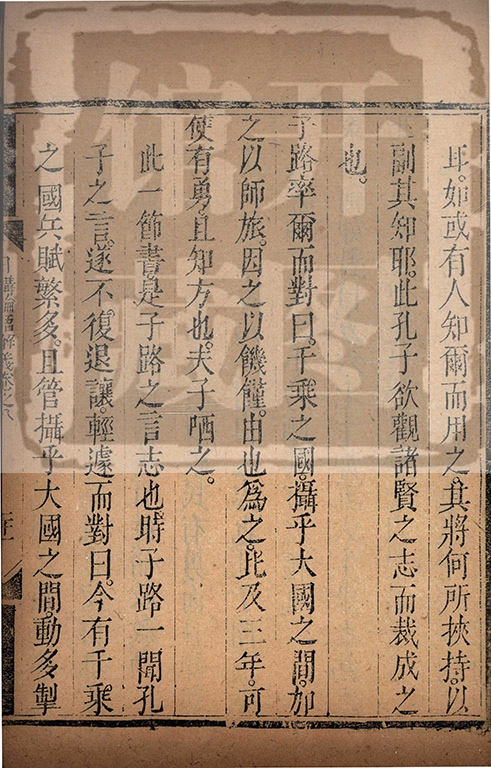 耳。如或有人知爾而用之。其將何所挾持。以
副其知耶。此孔子欲觀諸賢之志而裁成之
也。
子路率爾而對曰。千乘之國。攝乎大國之間。加
之以師旅。因之以饑饉。由也為之。比及三年。可
使有勇。且知方也。夫子哂之。
此一節書。是子路之言志也。時子路一聞孔
子之言。遂不復退讓。輕遽而對曰。今有千乘
之國。兵賦繁多。且管攝乎大國之間。動多掣
日講四書解義卷之八